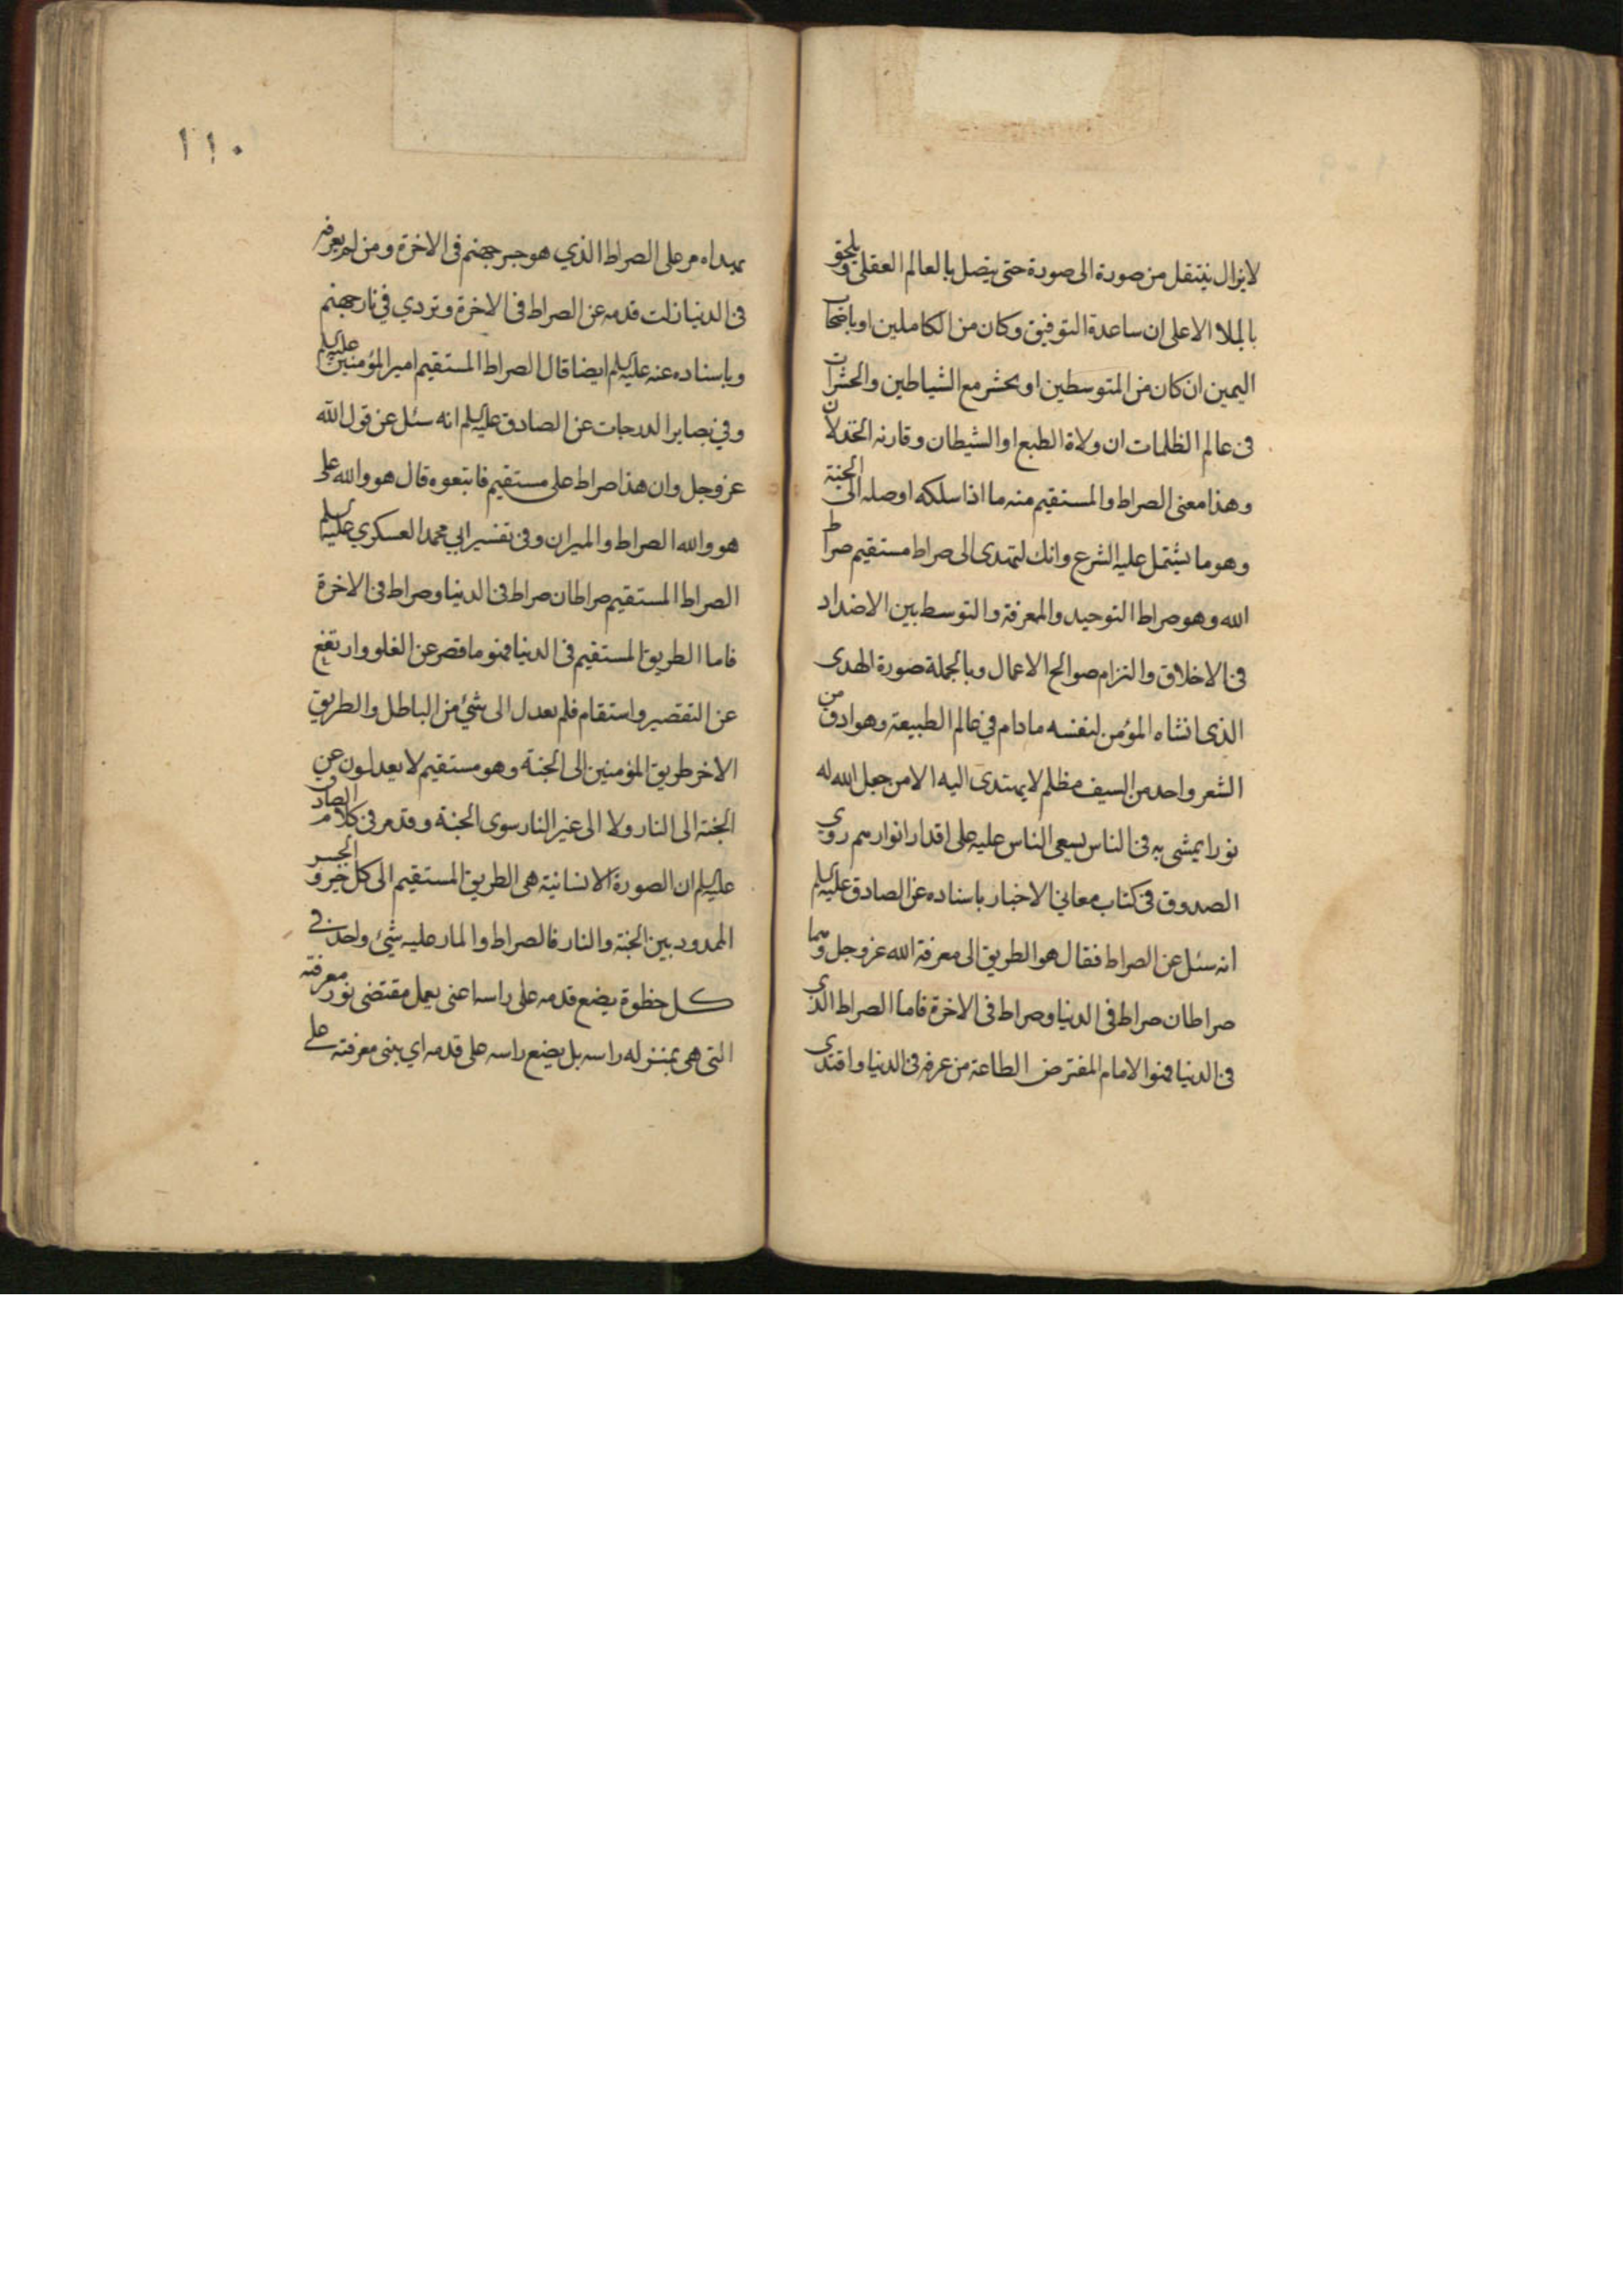 لايزال ينتقل من صورة الى صورة حتى يتصل بالعالم العقلى ويلحق
بالملاء الاعلى ان ساعدة التوفيق وكان من الكاملين او باصحاب
اليمين ان كان من المتوسطين او يحشر مع الشياطين والحشرات
فى عالم الظلمات ان ولاة الطبع او الشيطان وقارنه الخذلان
وهذا معنى الصراط والمستقيم منه ما اذا سلكه اوصله الى الجنة
وهو ما يشتمل عليه الشرع وانك لتهدى الى صراط مستقيم صراط
الله وهو صراط التوحيد والمعرفة والتوسط بين الاضداد
فى الاخلاق والتزام صوالح الاعمال وبالجملة صورة الهدى
الذى انشاه المؤمن لنفسه مادام في عالم الطبيعة وهو ادق من
الشعر واحد من السيف مظلم لا يهتدى اليه الا من جعل الله له
نورا يمشى به فى الناس يسعى الناس عليه على اقدار انوارهم روى
الصدوق فى كتاب معاني الاخبار باسناده عن الصادق عليه السلم
انه سئل عن الصراط فقال هو الطريق الى معرفة الله عز وجل وهما
صراطان صراط فى الدنيا وصراط فى الاخرة فاما الصراط الذى
فى الدنيا فهو الامام المفترض الطاعة من عرفه فى الدنيا واقتدى
١١٠
بهداه مر على الصراط الذي هو جسر جهنم فى الاخرة ومن لم يعرفه
فى الدنيا زلت قدمه عن الصراط فى الاخرة وتردي في نار جهنم
وباسناده عنه عليه السلم ايضا قال الصراط المستقيم امير المؤمنين عليه السلم
وفي بصاير الدرجات عن الصادق عليه السلم انه سئل عن قول الله
عز وجل وان هذا صراط على مستقيم فاتبعوه قال هو والله على
هو والله الصراط والميزان وفى تفسير ابي محمد العسكري عليه السلم
الصراط المستقيم صراطان صراط فى الدنيا وصراط فى الاخرة
فاما الطريق المستقيم فى الدنيا فهو ما قصر عن الغلو وارتفع
عن التقصير واستقام فلم يعدل الى شئ من الباطل والطريق
الاخر طريق المؤمنين الى الجنة وهو مستقيم لا يعدلون عن
الجنة الى النار ولا الى غير النار سوى الجنة وقد مر فى كلام الصادق
عليه السلم ان الصورة الانسانية هى الطريق المستقيم الى كل خير والجسر
الممدود بين الجنة والنار فالصراط والمار عليه شئ واحد فى
كل خطوة يضع قدمه على راسه اعنى يعمل مقتضى نور معرفته
التى هى بمنزله راسه بل يضع راسه على قدمه اي يبنى معرفته على